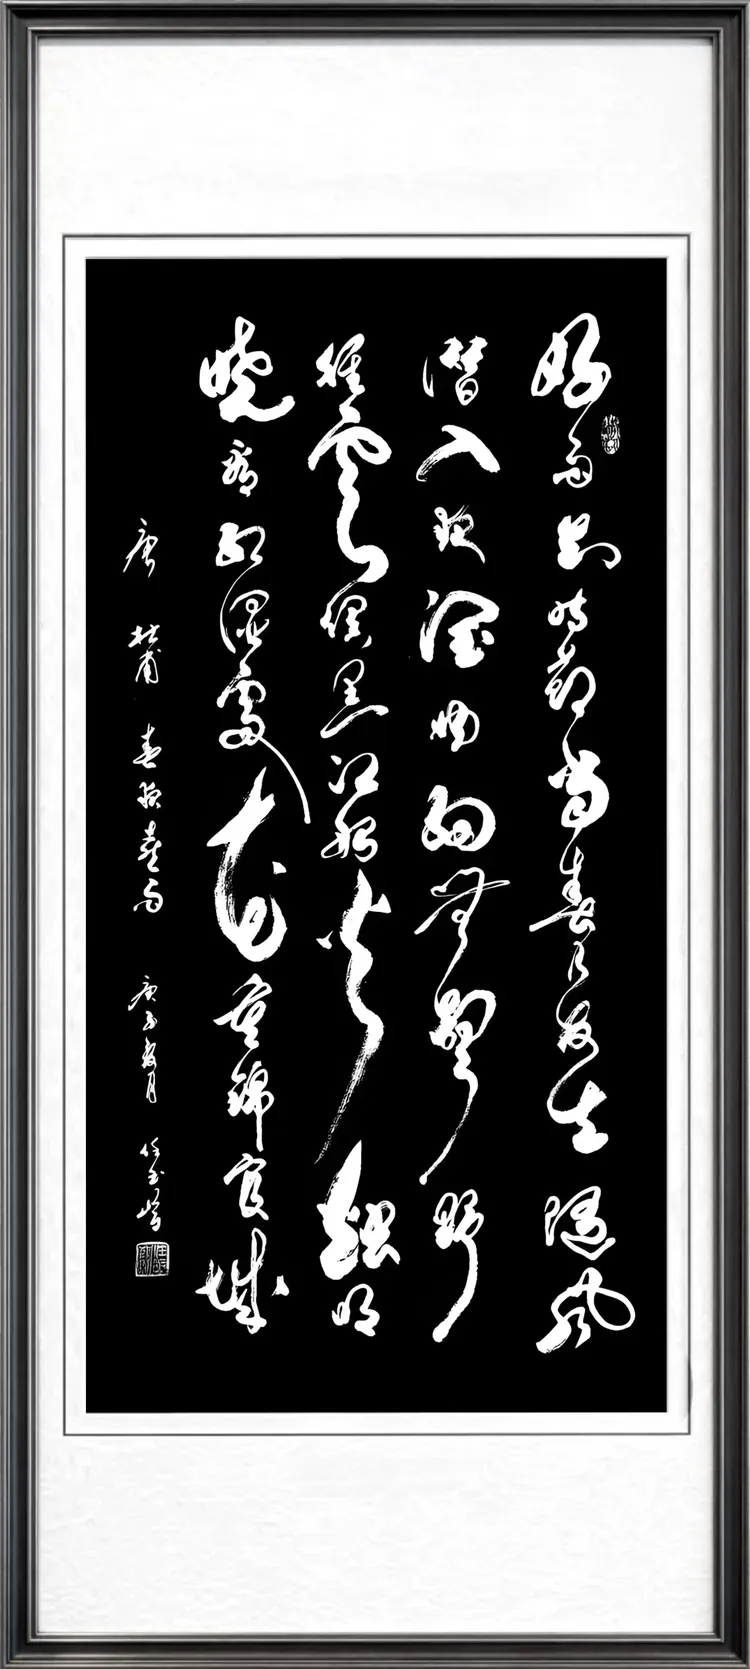 好雨知時節當春乃發生隨風
潛入夜潤物細無聲野
徑雲俱黑江船火獨明
曉看紅濕處花重錦官城
唐 杜甫 春夜喜雨 庚子夏月 任玉岭